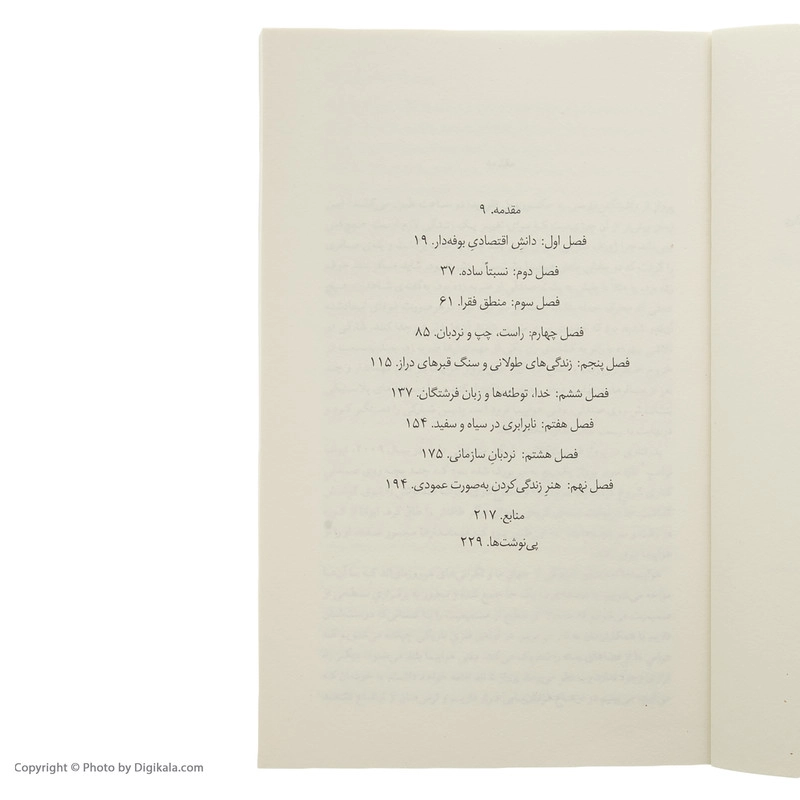 مقدمه. ۹
فصل اول: دانشِ اقتصادیِ بوفه‌دار. ۱۹
فصل دوم: نسبتاً ساده. ۳۷
فصل سوم: منطق فقرا. ۶۱
فصل چهارم: راست، چپ و نردبان. ۸۵
فصل پنجم: زندگی‌های طولانی و سنگ قبرهای دراز. ۱۱۵
فصل ششم: خدا، توطئه‌ها و زبان فرشتگان. ۱۳۷
فصل هفتم: نابرابری در سیاه و سفید. ۱۵۴
فصل هشتم: نردبانِ سازمانی. ۱۷۵
فصل نهم: هنرِ زندگی‌کردن به‌صورت عمودی. ۱۹۴
منابع. ۲۱۷
پی‌نوشت‌ها. ۲۲۹
Copyright © Photo by Digikala.com